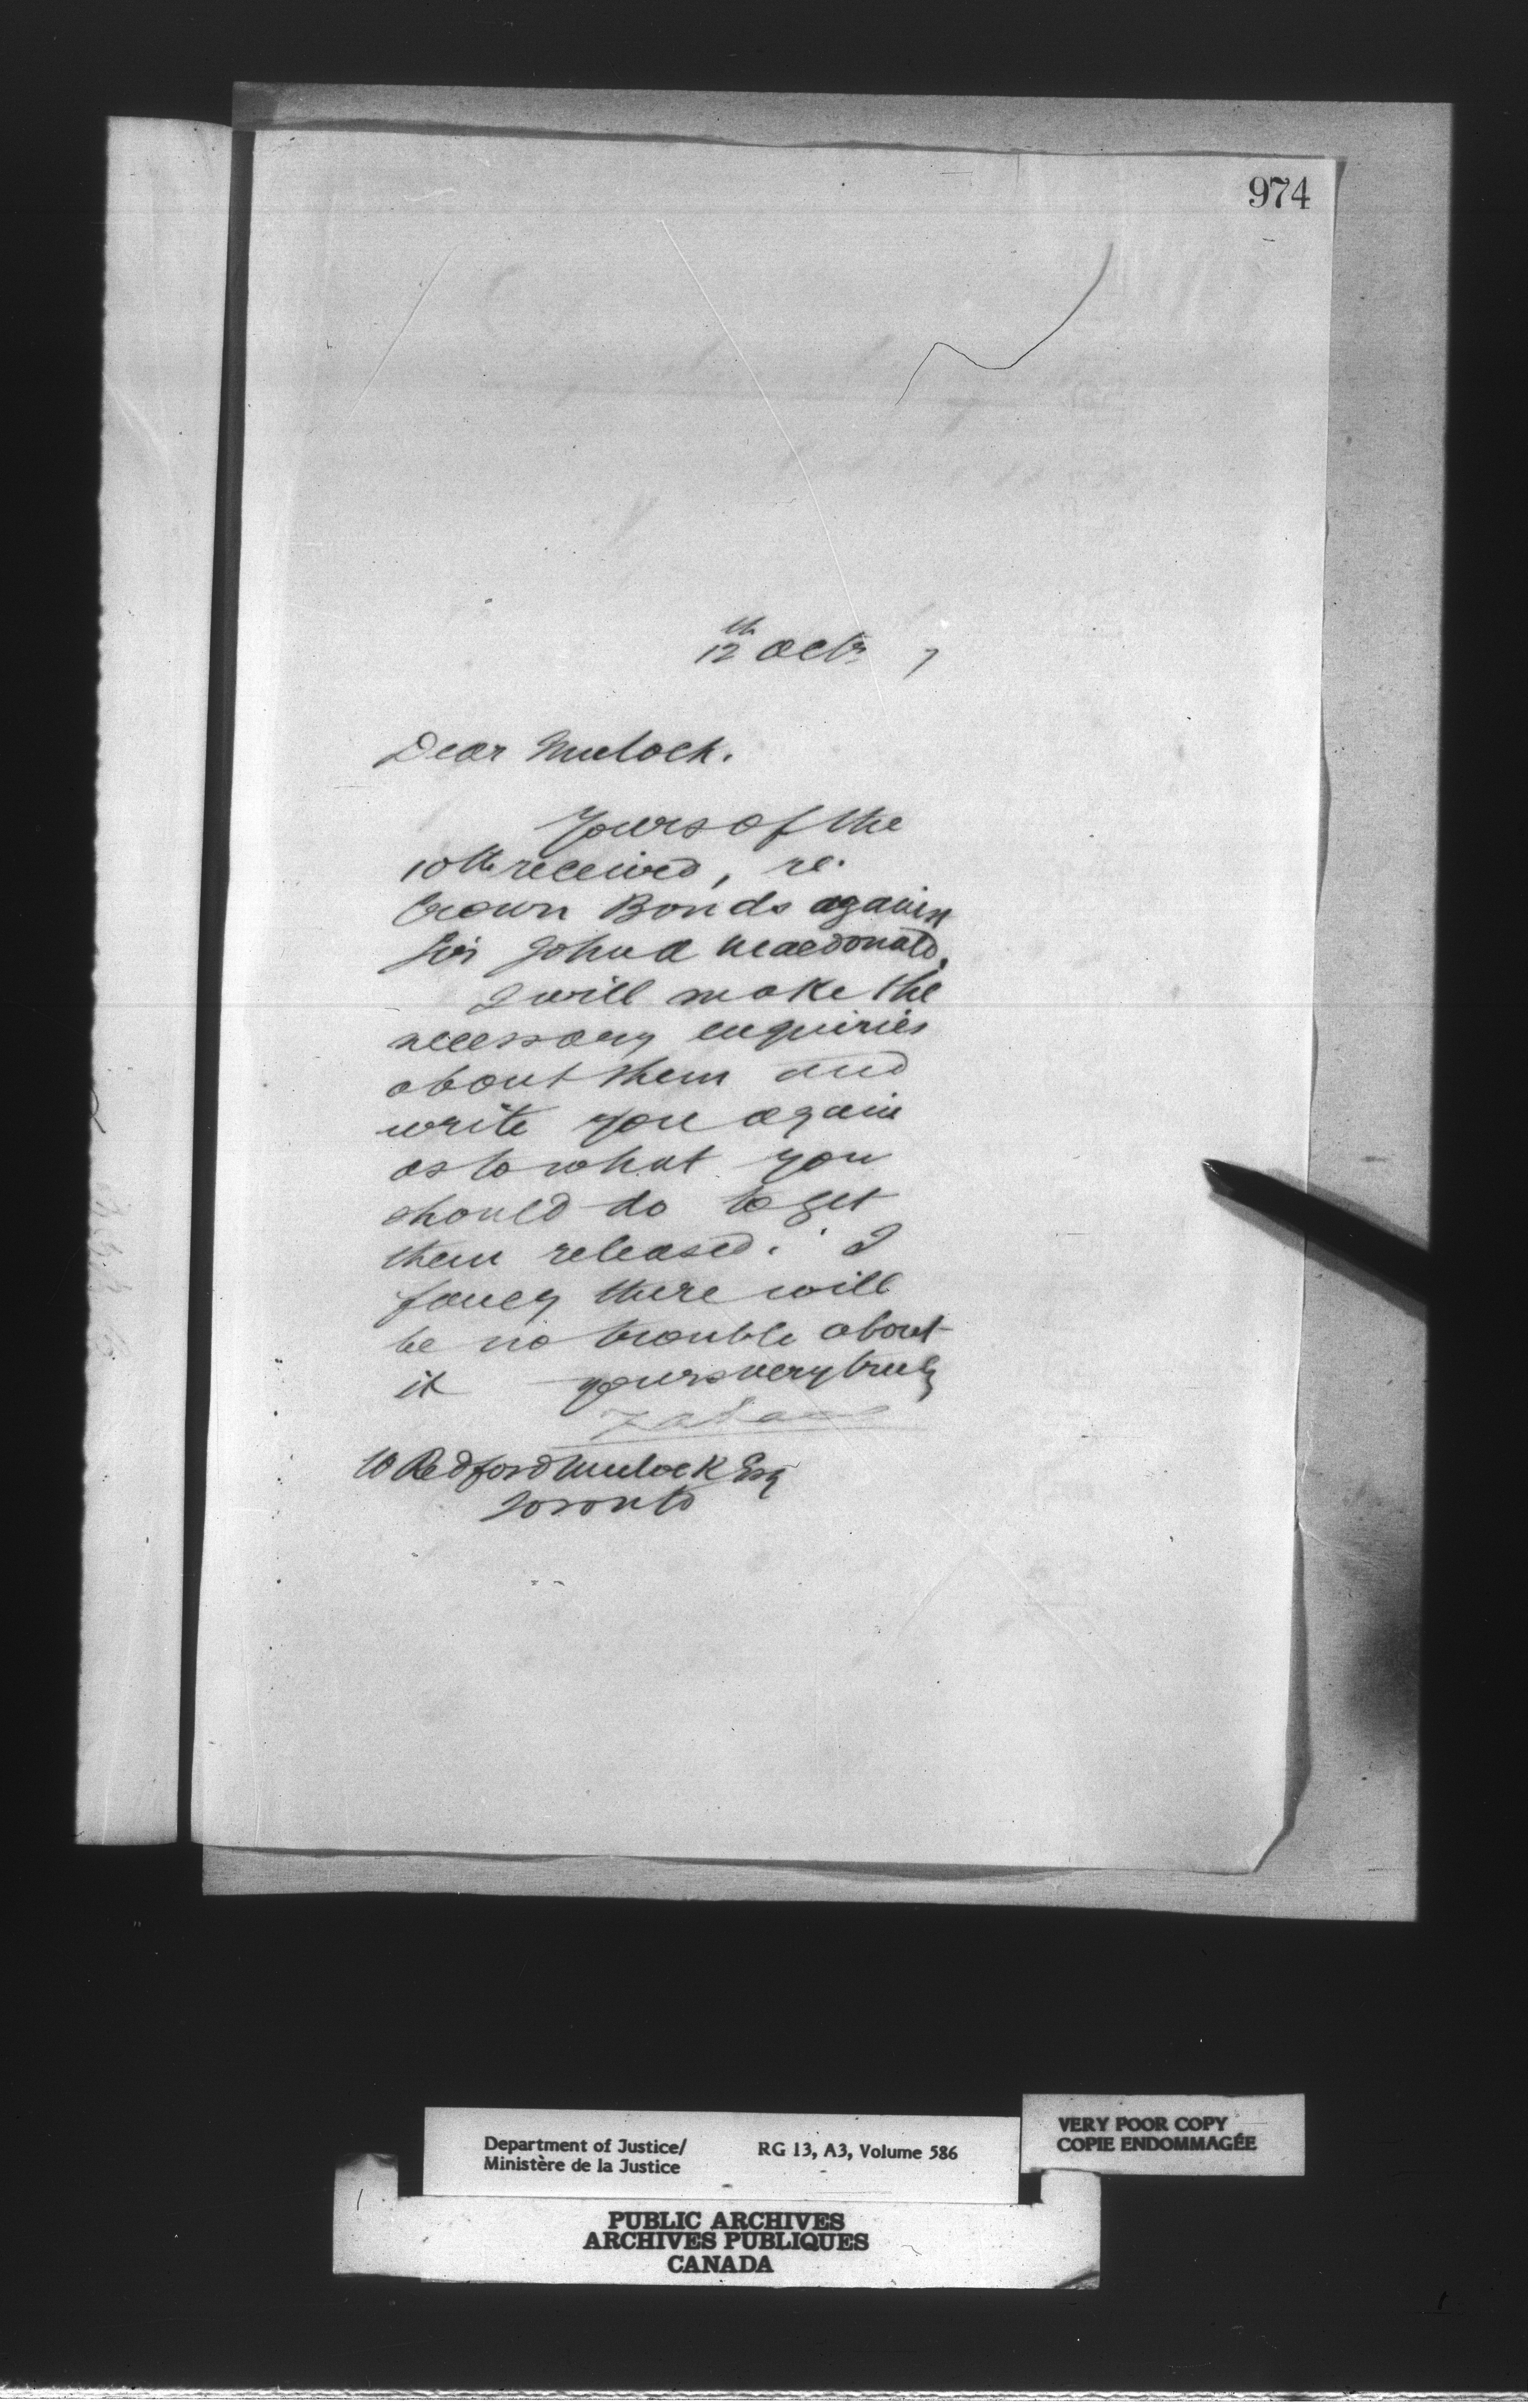 974
12th Octr 7
Dear Mulock.
Yours of the
10th received, re.
Crown Bonds against
Sir John A Macdonald.
I will make the
necessary enquiries
about them and
write you again
as to what you
should do to get
them released. I
fancy there will
be no trouble about
it yours very truly
W Redford Mulock Esq
Toronto
Department of Justice/
Ministère de la Justice
RG 13, A3, Volume 586
VERY POOR COPY
COPIE ENDOMMAGÉE
PUBLIC ARCHIVES
ARCHIVES PUBLIQUES
CANADA